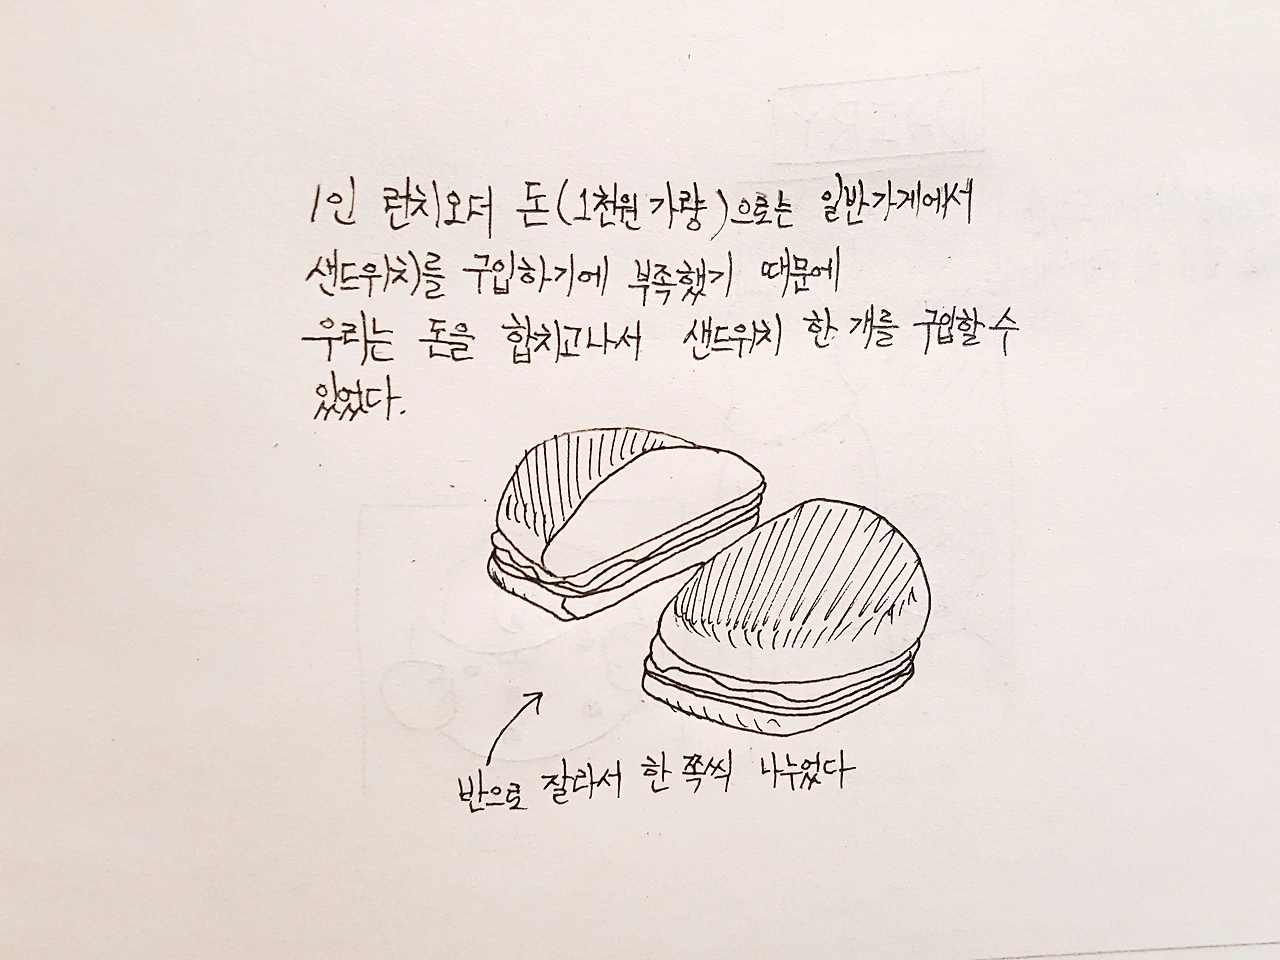 1인 런치오더 돈(1천원 가량)으로는 일반가게에서
샌드위치를 구입하기에 부족했기 때문에
우리는 돈을 합치고나서 샌드위치 한 개를 구입할 수
있었다.
반으로 잘라서 한 쪽씩 나누었다